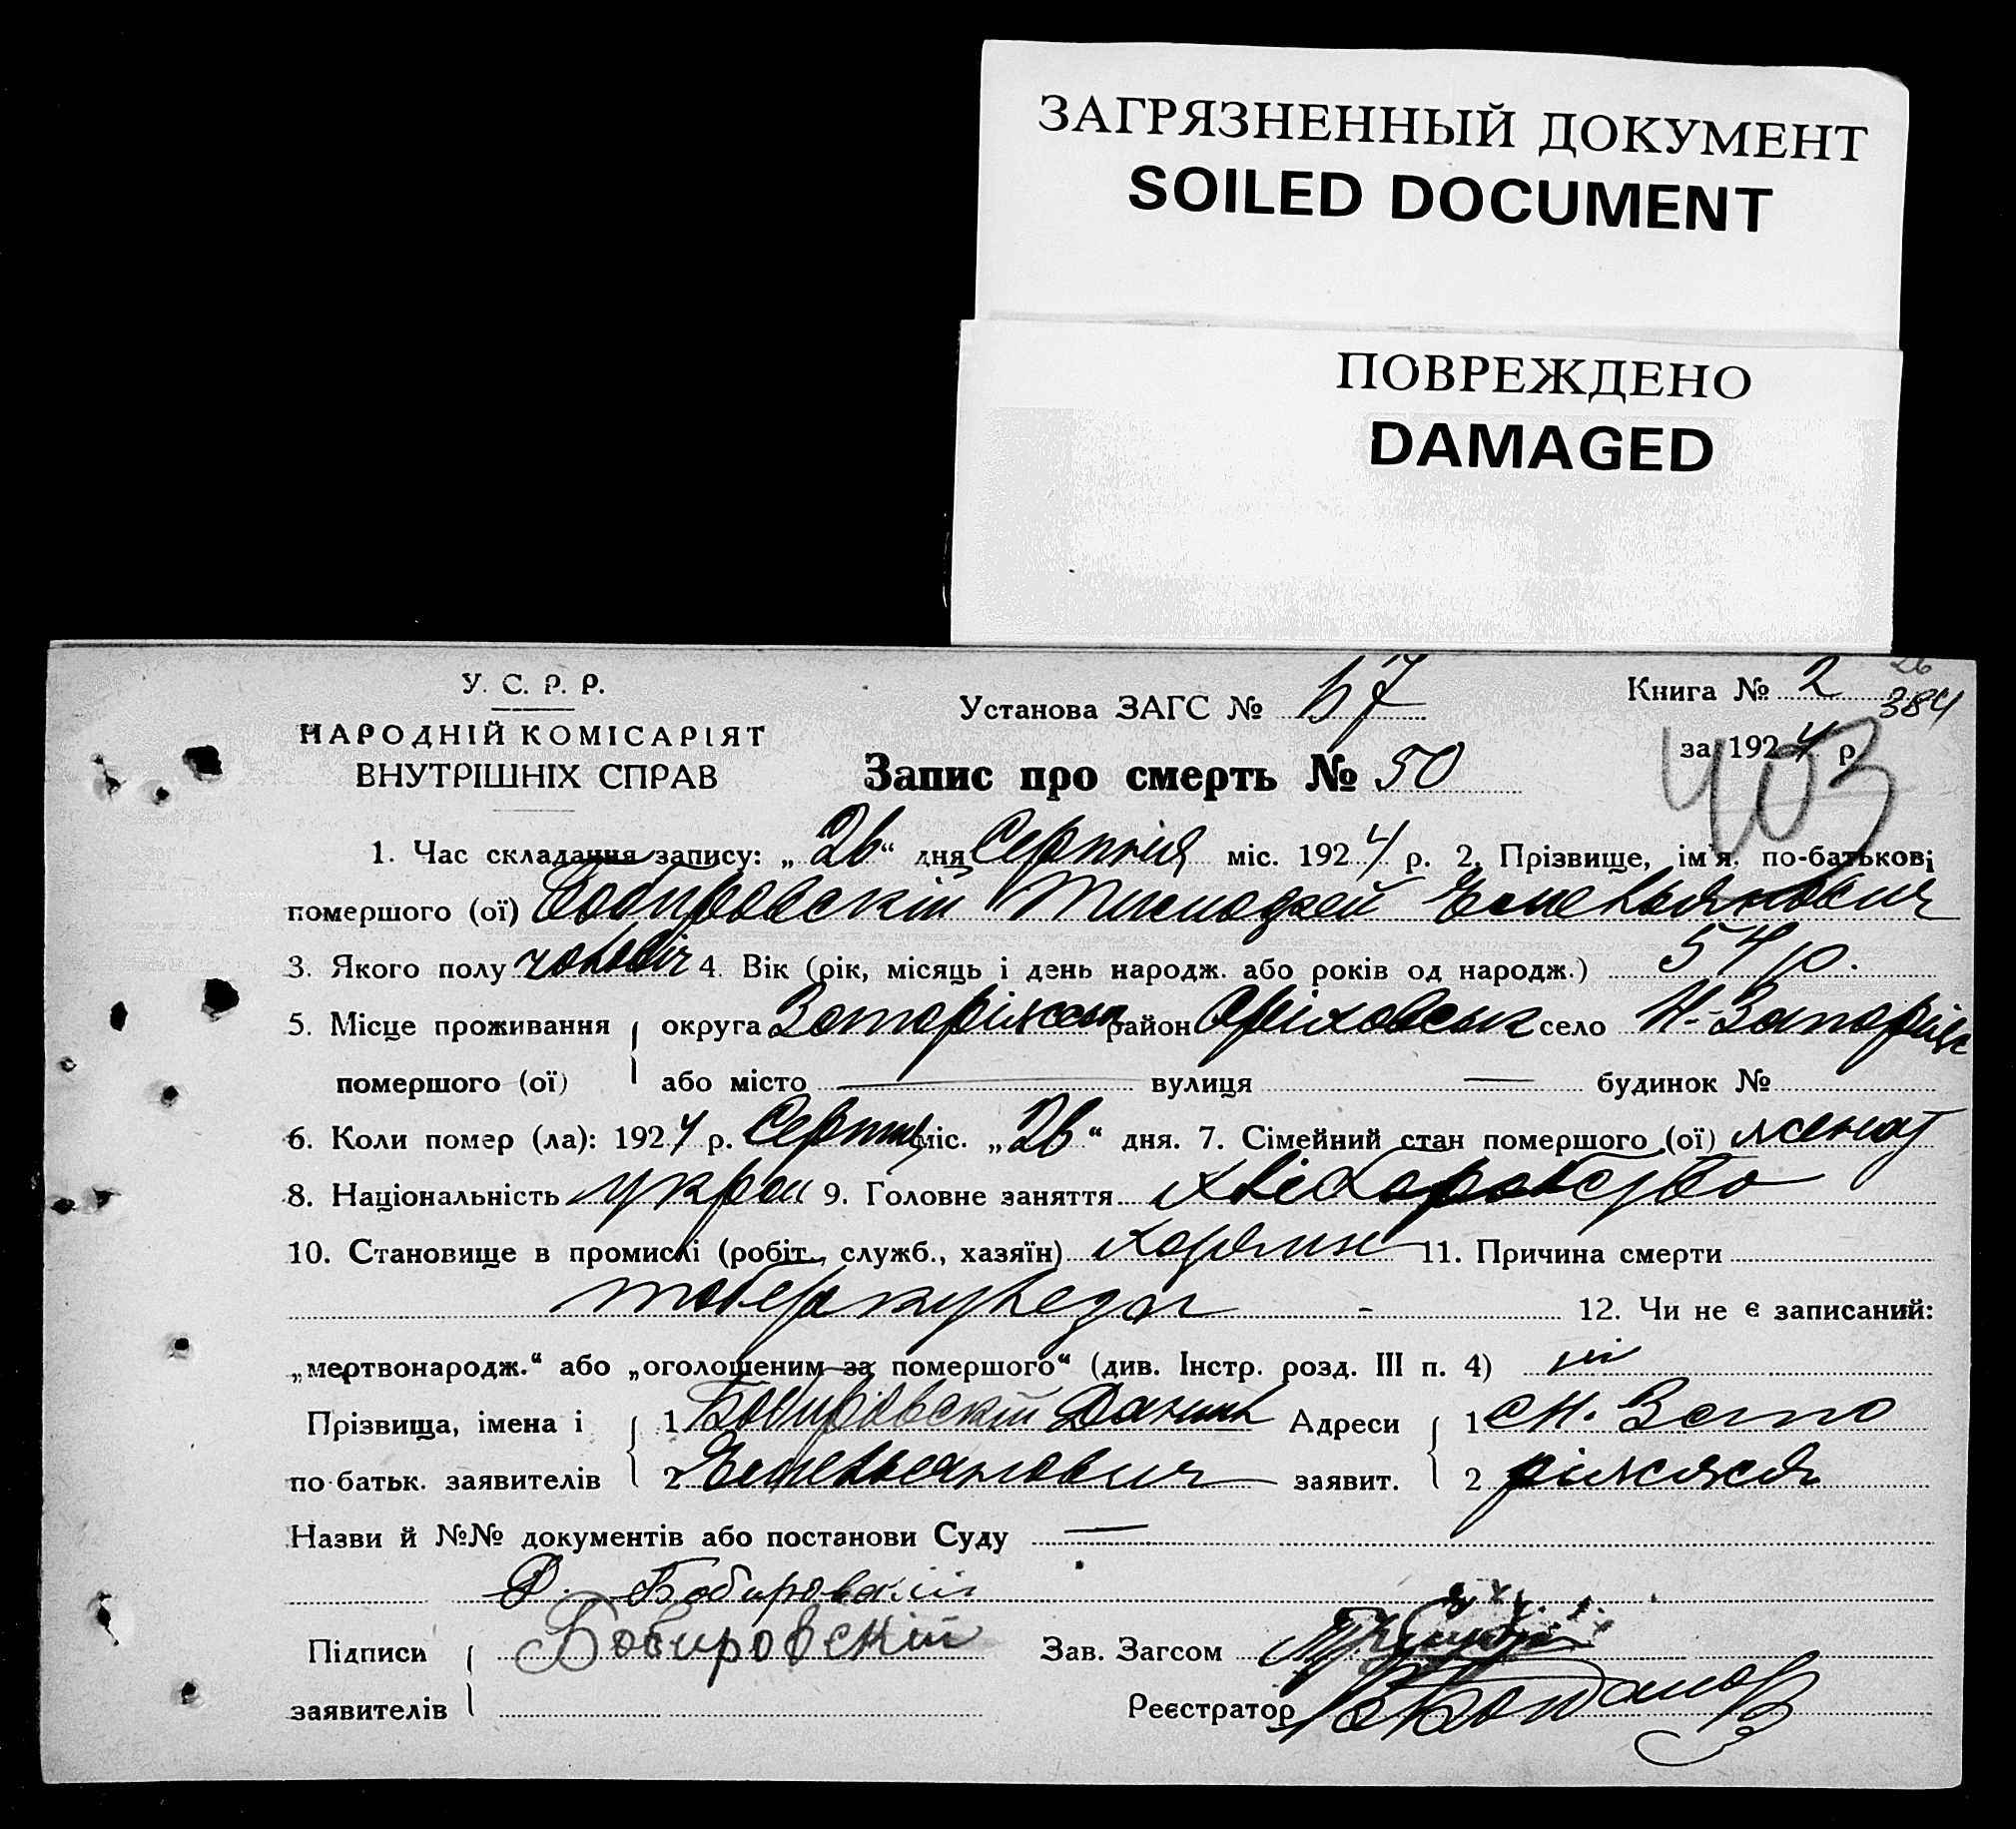 ЗАГРЯЗНЕННЫЙ ДОКУМЕНТ
SOILED DOCUMENT
ПОВРЕЖДЕНО
DAMAGED
У. С. Р. Р.
НАРОДНІЙ КОМІСАРІЯТ
ВНУТРІШНІХ СПРАВ
Установа ЗАГС № 57
Книга № 2
26
384
за 1924 р.
403
Запис про смерть № 50
1. Час складання запису: „26“ дня Серпня міс. 1924 р. 2. Прізвище, ім'я, по-батькові
помершого (ої) Бобировскій Тимофей Емельянович
3. Якого полу чоловіч 4. Вік (рік, місяць і день народж. або років од народж.) 54 р.
5. Місце проживання округа Запоріжськ район Оріховськ село Н-Запоріжс
помершого (ої) або місто — вулиця — будинок №
6. Коли помер (ла): 1924 р. Серпня міс. „26“ дня. 7. Сімейний стан помершого (ої) женат
8. Національність украи 9. Головне заняття хліборобство
10. Становище в промислі (робіт., служб., хазяїн) хозяин 11. Причина смерти
12. Чи не є записаний:
„мертвонародж.“ або „оголошеним за помершого“ (див. Інстр. розд. III п. 4) ні
Прізвища, імена і 1 Бобировскій Данил Адреси 1 с Н. Запо
по батьк. заявителів 2 Емельянович заявит. 2 ріжжя
Назви й №№ документів або постанови Суду —
Д. Бобировскій
Підписи Бобировскій Зав. Загсом
заявителів Реєстратор